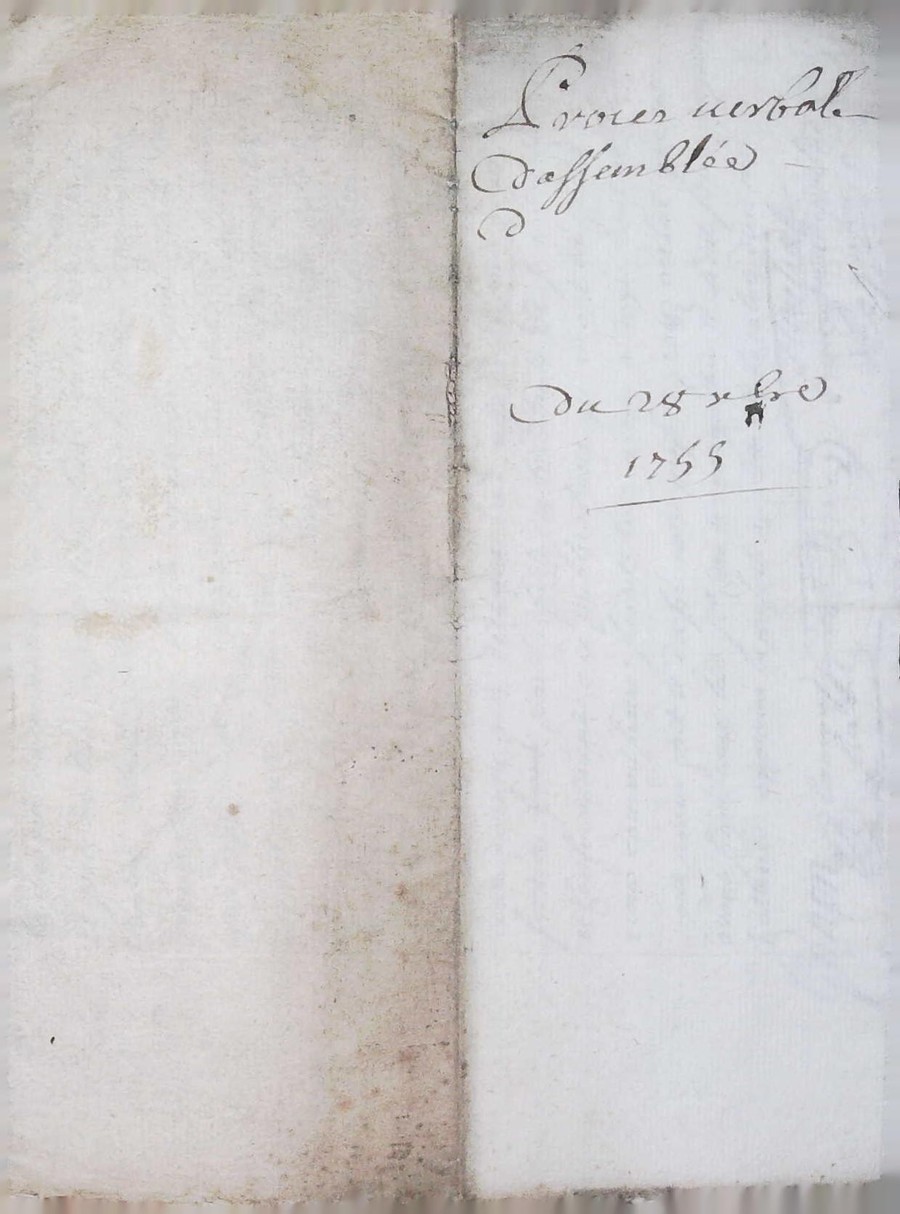 Proces verbal
d'assemblée
d
du 28 xbre
1755